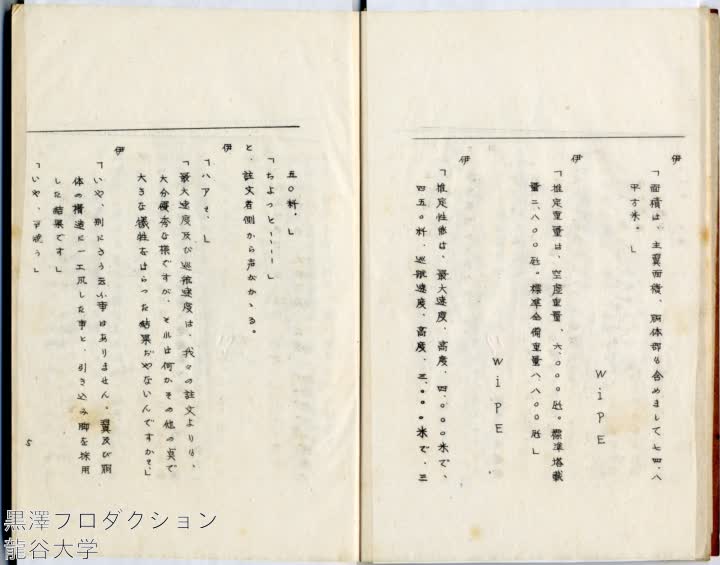 伊
「面積は、主翼面積、胴体部も含めまして七四.八
平方米。」
WIPE
伊
「推定重量は、空虚重量、六.〇〇〇瓩。標準塔載
量二.八〇〇瓩。標準全備重量八八〇〇瓩」
WIPE
伊
「推定性能は、最大速度、高度、四.〇〇〇米で、
四五〇粁、巡航速度、高度、三.〇〇〇米で、三
五〇粁。」
「ちよつと……」
と、註文者側から声がかゝる。
伊
「ハアそ、」
「最大速度及び巡航速度は、我々の註文よりも、
大分優秀な様ですが、それは何かその他の点で
大きな犠牲をはらつた結果ぢやないんですか、」
伊
「いや、別にさう云ふ事はありません。翼及び胴
体の構造に一工夫した事と、引き込み脚を採用
した結果です」
「いや、有難う」
5
黒澤フロダクション
龍谷大学